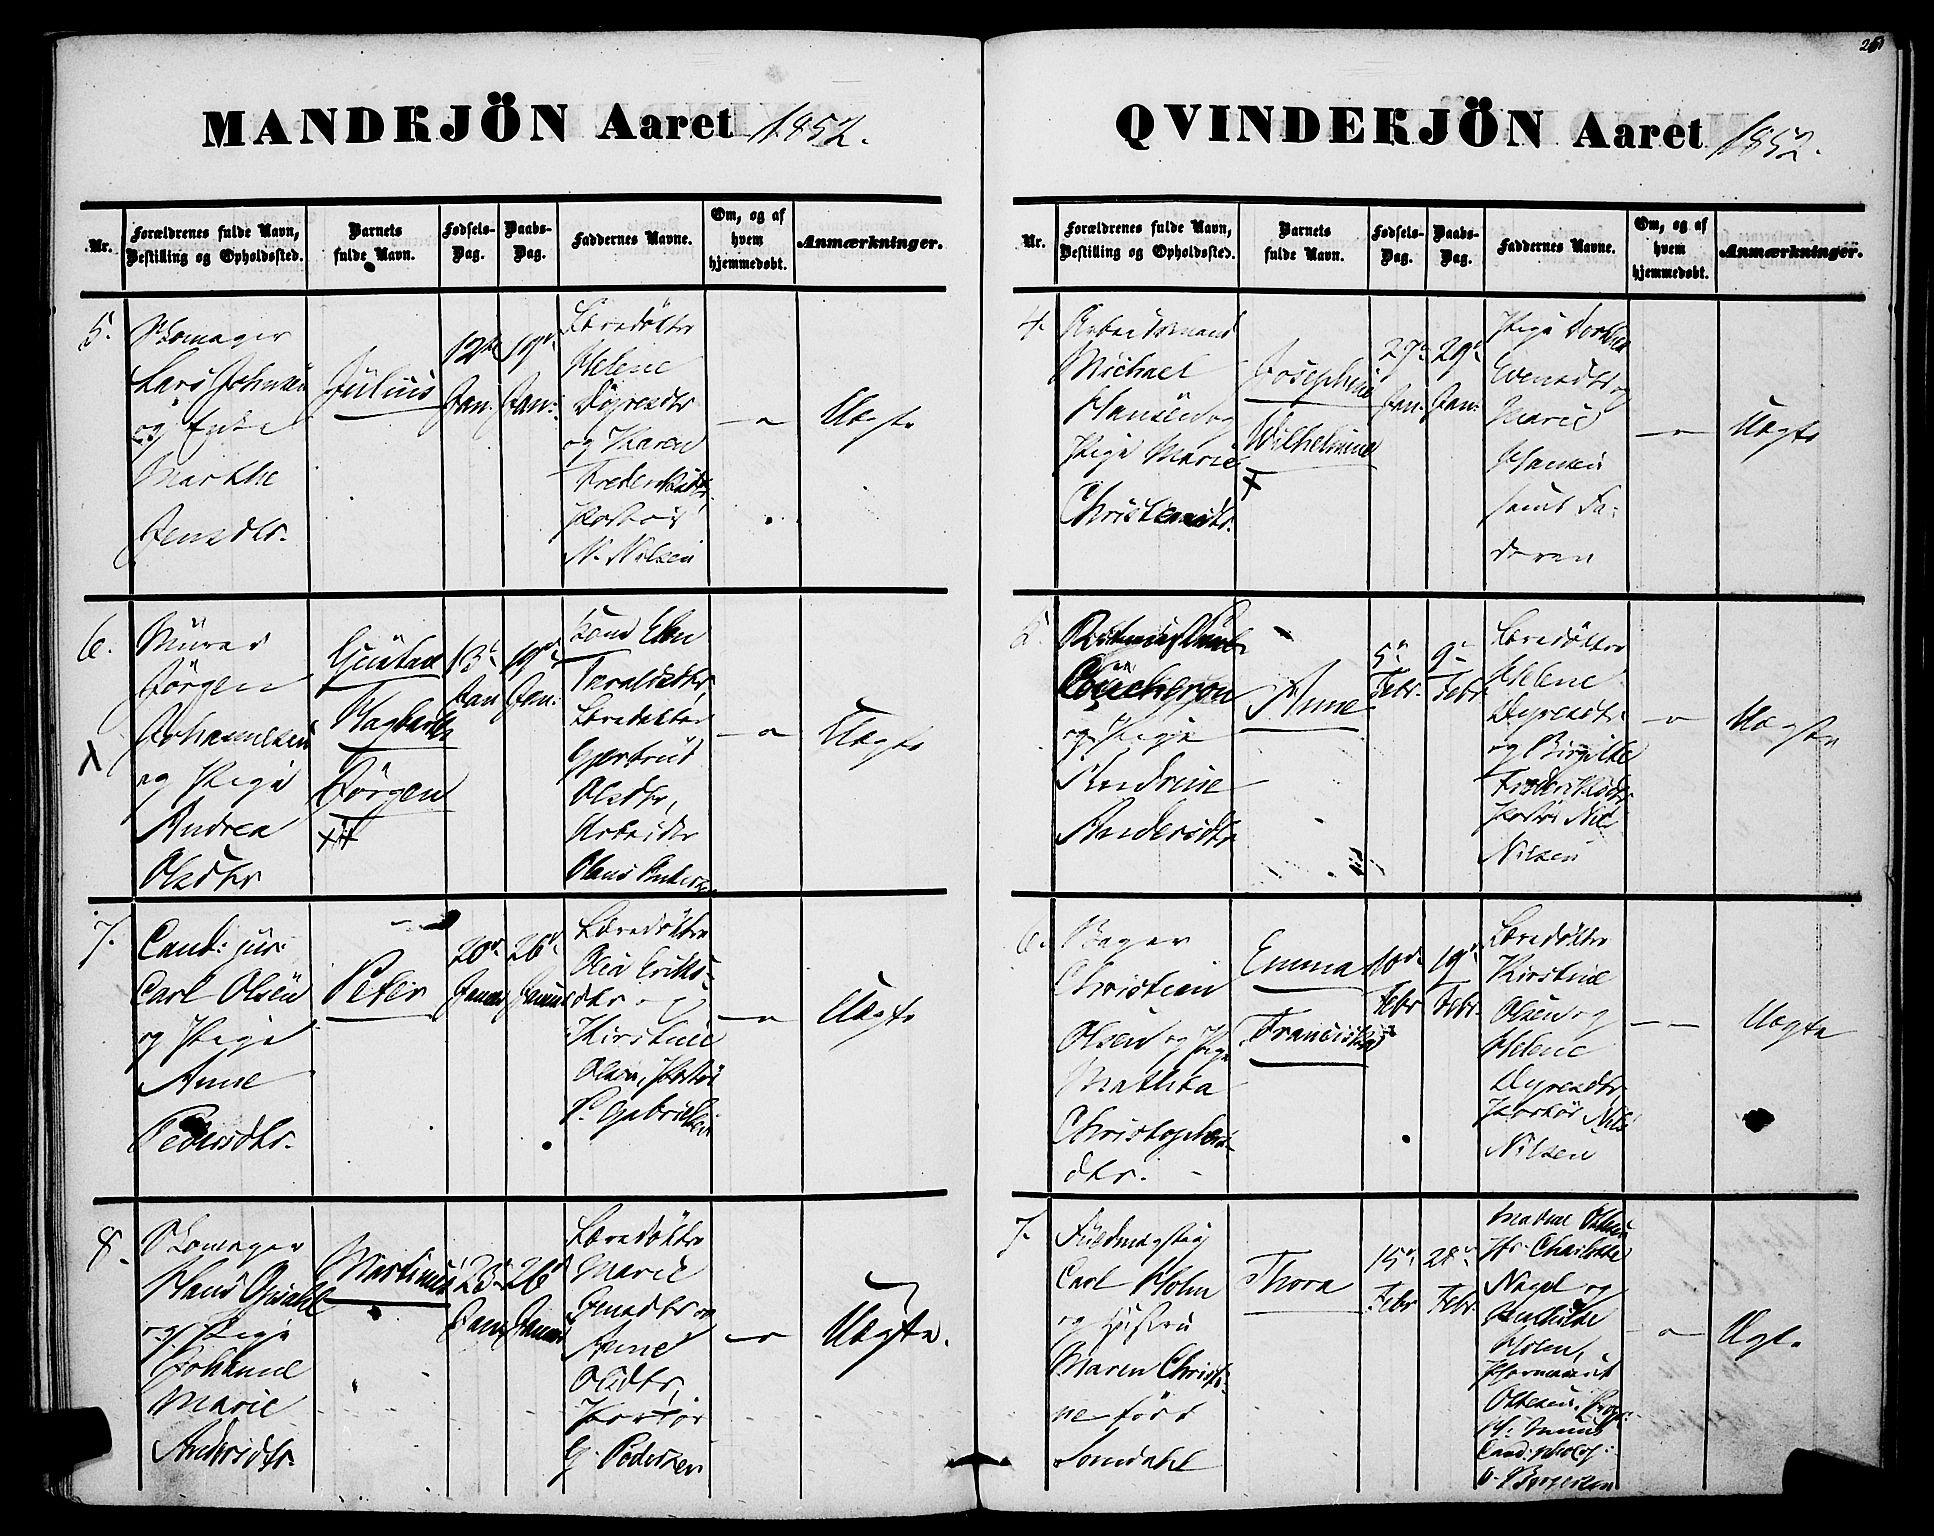 25
MANDKJÖN Aaret 1852.
Nr.
Forældrenes fulde Navn,
Bestilling og Opholdssted.
Barnets
fulde Navn.
Fødsels-
Dag.
Daabs-
Dag.
Faddernes Navne.
Om, og af
hvem
hjemmedøbt.
Anmærkninger.
5.
Skomager
Lars Johnsen
og Enke
Marthe
Jensdtr.
Julius
12te
Jan:
19d.
Jan:
Læredøttre
Helene
Dyresdtr
og Karen
Frederiksdtr,
Portør
N. Nilsen
Uægte
6.
Murer
Jørgen
Johannesen
og Pige
Andrea
Olsdtr
Gustav
Hagbarth
Jørgen
13d.
Jan
19d.
Jan:
Kone Elen
Taraldsdtr,
Læredatter
Gjertrud
Olsdtr,
Arbeider
Olaus Andersen
Uægte
7.
Cand: jur:
Carl Olsen
og Pige
Anne
Pedersdtr.
Peter
20d.
Januar
26d.
Januar
Læredøttre
Olea Eriks-
dtr og
Kirstine
Olsen, Portør
P. Gabrielsen
Uægte
8.
Skomager
Hans
og Pige
Johanne
Marie
Andersdtr.
Martinus
23d.
Januar
26d
Januar
Læredøttre
Marie
Evensdtr og
Anne
Olsdtr,
Portør
G. Pedersen
Uægte.
QVINDEKJÖN Aaret 1852.
Nr.
Forældrenes fulde Navn,
Bestilling og Opholdssted.
Barnets
fulde Navn.
Fødsels-
Dag.
Daabs-
Dag.
Faddernes Navne.
Om, og af
hvem
hjemmedøbt.
Anmærkninger.
4.
Arbeidsmand
Michael
Hansen og
Pige Marie
Christensdtr.
Josephine
Wilhelmine
27d.
Jan:
29d.
Jan:
Pige Dorthea
Evensdtr og
Marie
Hansen
samt Fa-
deren
Uægte
5.
Coucheron
og Pige
Andrine
Andersdtr
Anne
5d.
Febr.
9d.
Febr
Læredøttre
Helene
Dyresdtr
og Birgitte
Frederiksdtr
Portør Nils
Nilsen
Uægte
6.
Bager
Christian
Olsen og Pige
Mathea
Christophers-
dtr.
Emma
Francisca
10d.
Febr
19d.
Febr.
Læredøttre
Kirstine
Olsen og
Helene
Dyresdtr
Portør Nils
Nilsen
Uægte
7.
Fuldmægtig
Carl Holm
og Hustru
Maren Christi-
ne født
Somdahl
Thora
15d.
Febr
28d.
Febr.
Madme Ottesen
Fr. Charlotte
Nagel og
Mathilde
Holm,
Ottesen,
Cand: philos:
Borgersen
Ægte